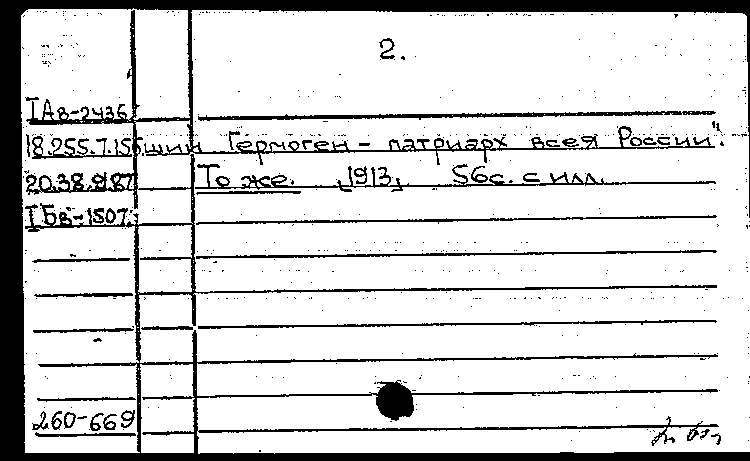 2.
IАв-2436
18.255.7.156 щий Гермоген - патриарх всея России".
20.38.9.87 То же. [1913] 56с. с илл.
IБв-1507
260-669